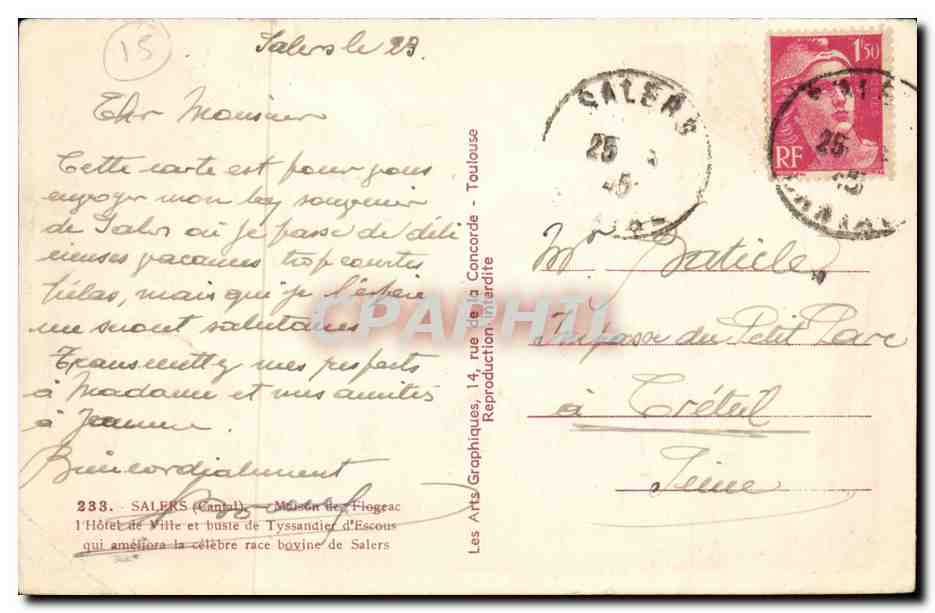 15
Salers le 23
Cher Monsieur
Cette carte est pour vous
envoyer mon bon souvenir
de Salers où je passe de déli
cieuses vacances trop courtes
hélas, mais qui je l'espère
me seront salutaires
Transmettez mes respects
à Madame et mes amitiés
à Jeanne.
Bien cordialement
233. - SALERS (Cantal). - Maison de Flogeac
l'Hôtel de Ville et buste de Tyssandier d'Escous
qui améliora la célèbre race bovine de Salers
Les Arts Graphiques, 14, rue de la Concorde - Toulouse
Reproduction interdite
CPARHII
SALERS
25
45
1,50
RF
25
45
CANTAL
Mr Baticle
Impasse du Petit Parc
à Créteil
Seine